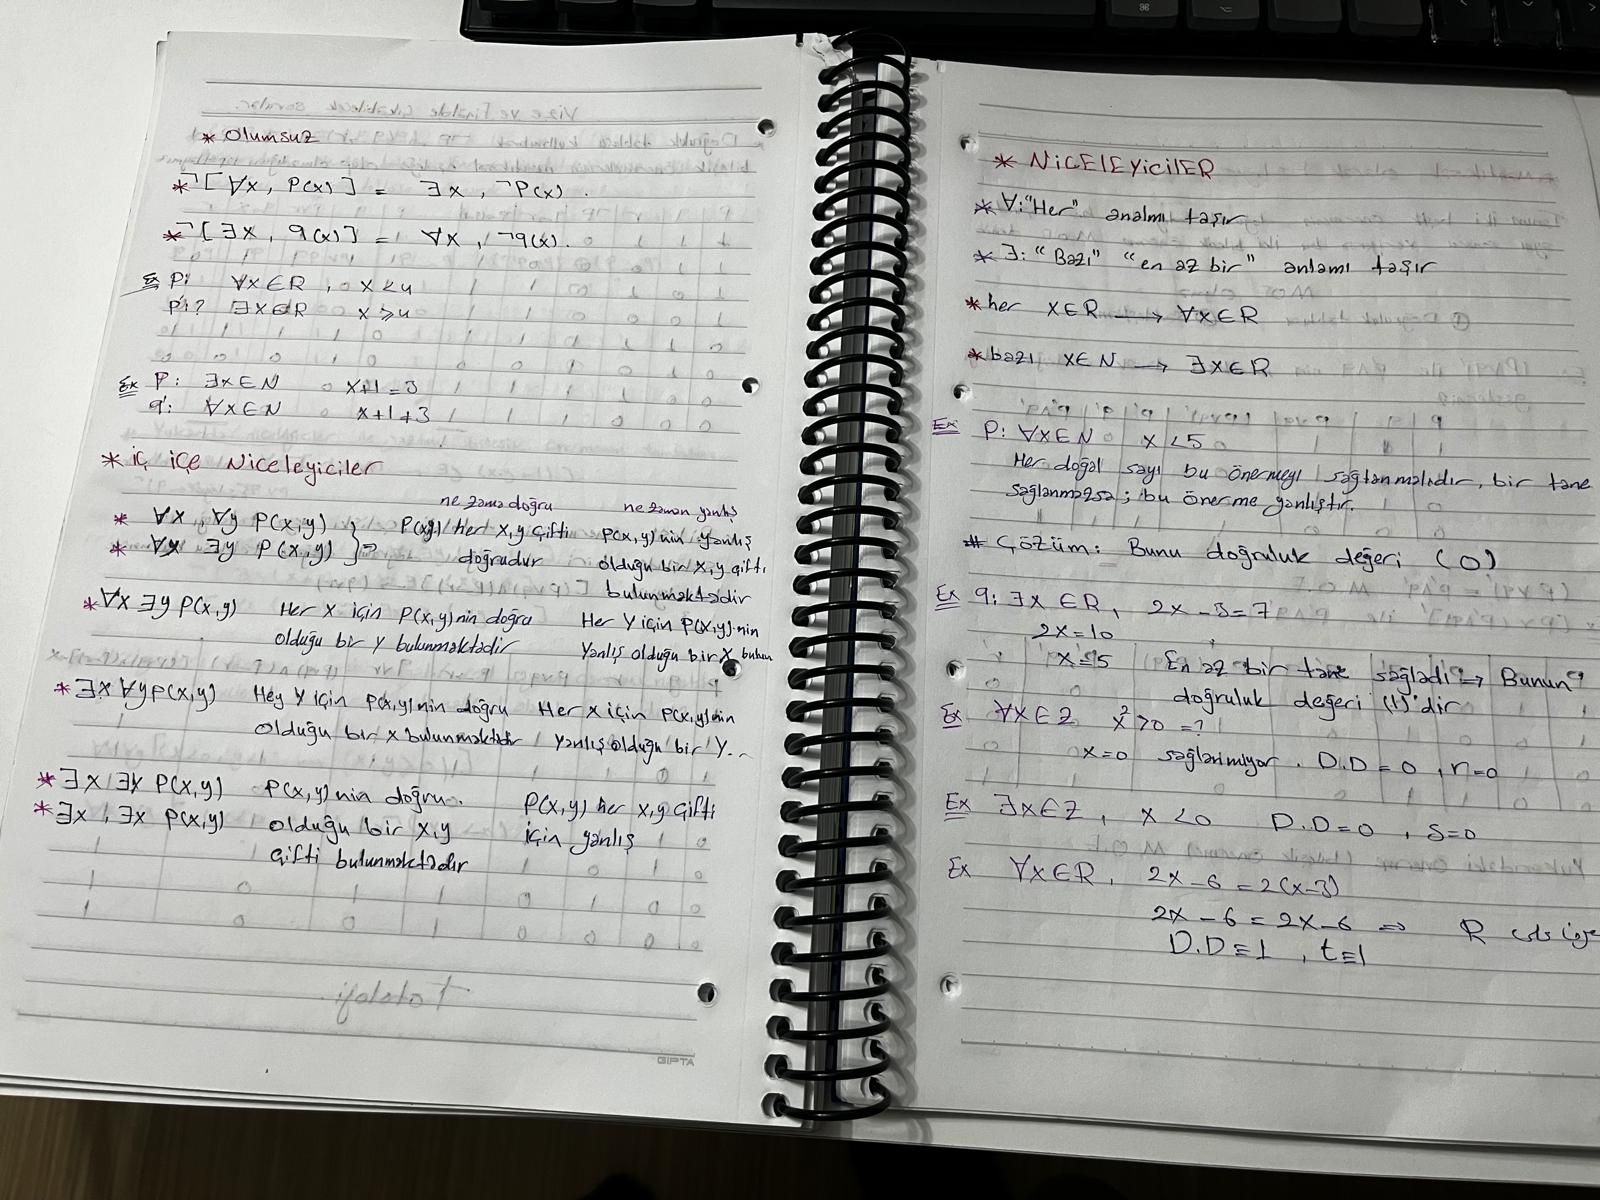 * Olumsuz
* ¬[∀x, P(x)] = ∃x, ¬P(x).
* ¬[∃x, q(x)] = ∀x, ¬q(x).
Ex P: ∀x∈R, x<4
P:? ∃x∈R x≥4
Ex P: ∃x∈N, x+1=3
q': ∀x∈N, x+1+3
* iç içe Niceleyiciler
ne zama doğru ne zaman yanlış
* ∀x, ∀y P(x,y) } P(x,y) her x,y çifti P(x,y)'nin yanlış
* ∀x ∃y P(x,y) } = doğrudur olduğu bir x,y çifti
bulunmaktadır
* ∀x ∃y P(x,y) Her x için P(x,y)nin doğru Her y için P(x,y)nin
olduğu bir y bulunmaktadır yanlış olduğu bir x bulun
* ∃x ∀y P(x,y) Hey y için P(x,y)nin doğru Her x için P(x,y)nin
olduğu bir x bulunmaktadır yanlış olduğu bir y...
* ∃x ∃y P(x,y) P(x,y)'nin doğru. P(x,y) her x,y çifti
* ∃x, ∃x P(x,y) olduğu bir x,y için yanlış
çifti bulunmaktadır
GIPTA
* NiCELEYiCiLER
* ∀:"Her" analmı taşır
* ∃: "Bazı" "en az bir" anlamı taşır
* her x∈R → ∀x∈R
* bazı x∈N → ∃x∈R
Ex P: ∀x∈N, x<5
Her doğal sayı bu önermeyi sağlanmalıdır, bir tane
sağlanmazsa; bu önerme yanlıştır.
* Çözüm: Bunu doğruluk değeri (0)
Ex q: ∃x∈R, 2x-3=7
2x=10
x=5 En az bir tane sağladı → Bunun
doğruluk değeri (1)'dir
Ex ∀x∈Z x²>0 =?
x=0 sağlanmıyor. D.D=0, r=0
Ex ∃x∈Z, x<0 D.D=0, s=0
Ex ∀x∈R, 2x-6=2(x-3)
2x-6=2x-6 ⇒ R
D.D≡1, t≡1